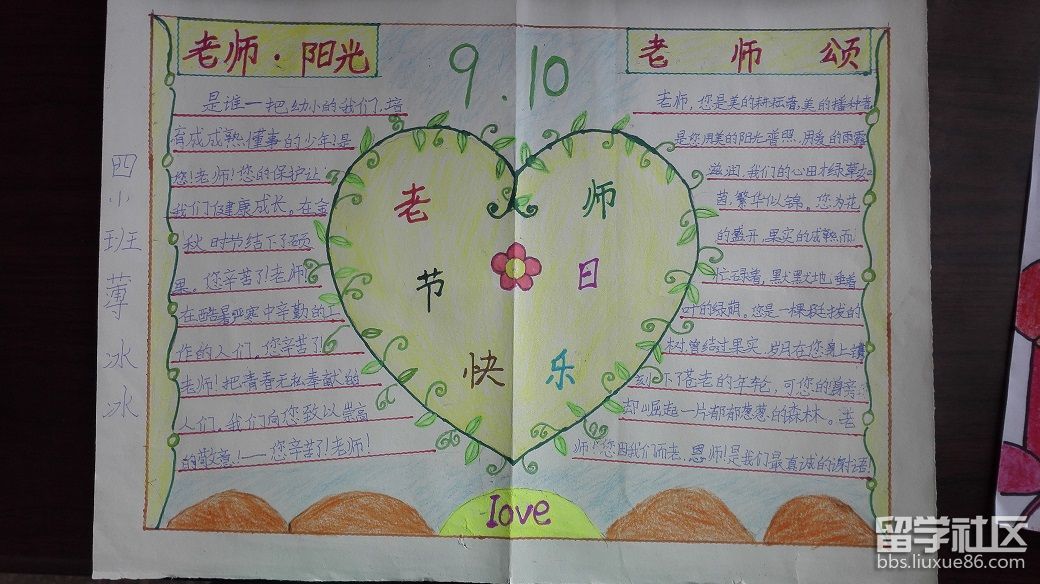 四小班薄冰冰
老师·阳光
是谁一把幼小的我们,培
育成成熟懂事的少年!是
您!老师!您的保护让
我们健康成长。在金
秋时节结下了硕
果。您辛苦了!老师!
在酷暑严寒中辛勤的工
作的人们。您辛苦了!
老师!把青春无私奉献给
人们。我们向您致以崇高
的敬意!——您辛苦了!老师!
9.10
老师
节日
快乐
love
老师颂
老师,您是美的耕耘者,美的播种者
是您用美的阳光普照,用爱的雨露
滋润,我们的心田才绿草如
茵,繁华似锦。您为花
的盛开,果实的成熟而
忙碌着,默默默地垂着
叶的绿荫。您是一棵挺拔的
树曾结过果实,岁月在您身上镌
刻下了苍老的年轮,可您的身旁
却崛起一片郁郁葱葱的森林。老
师!您因我们而老,恩师!是我们最真诚的谢语!
留学社区
bbs.liuxue86.com